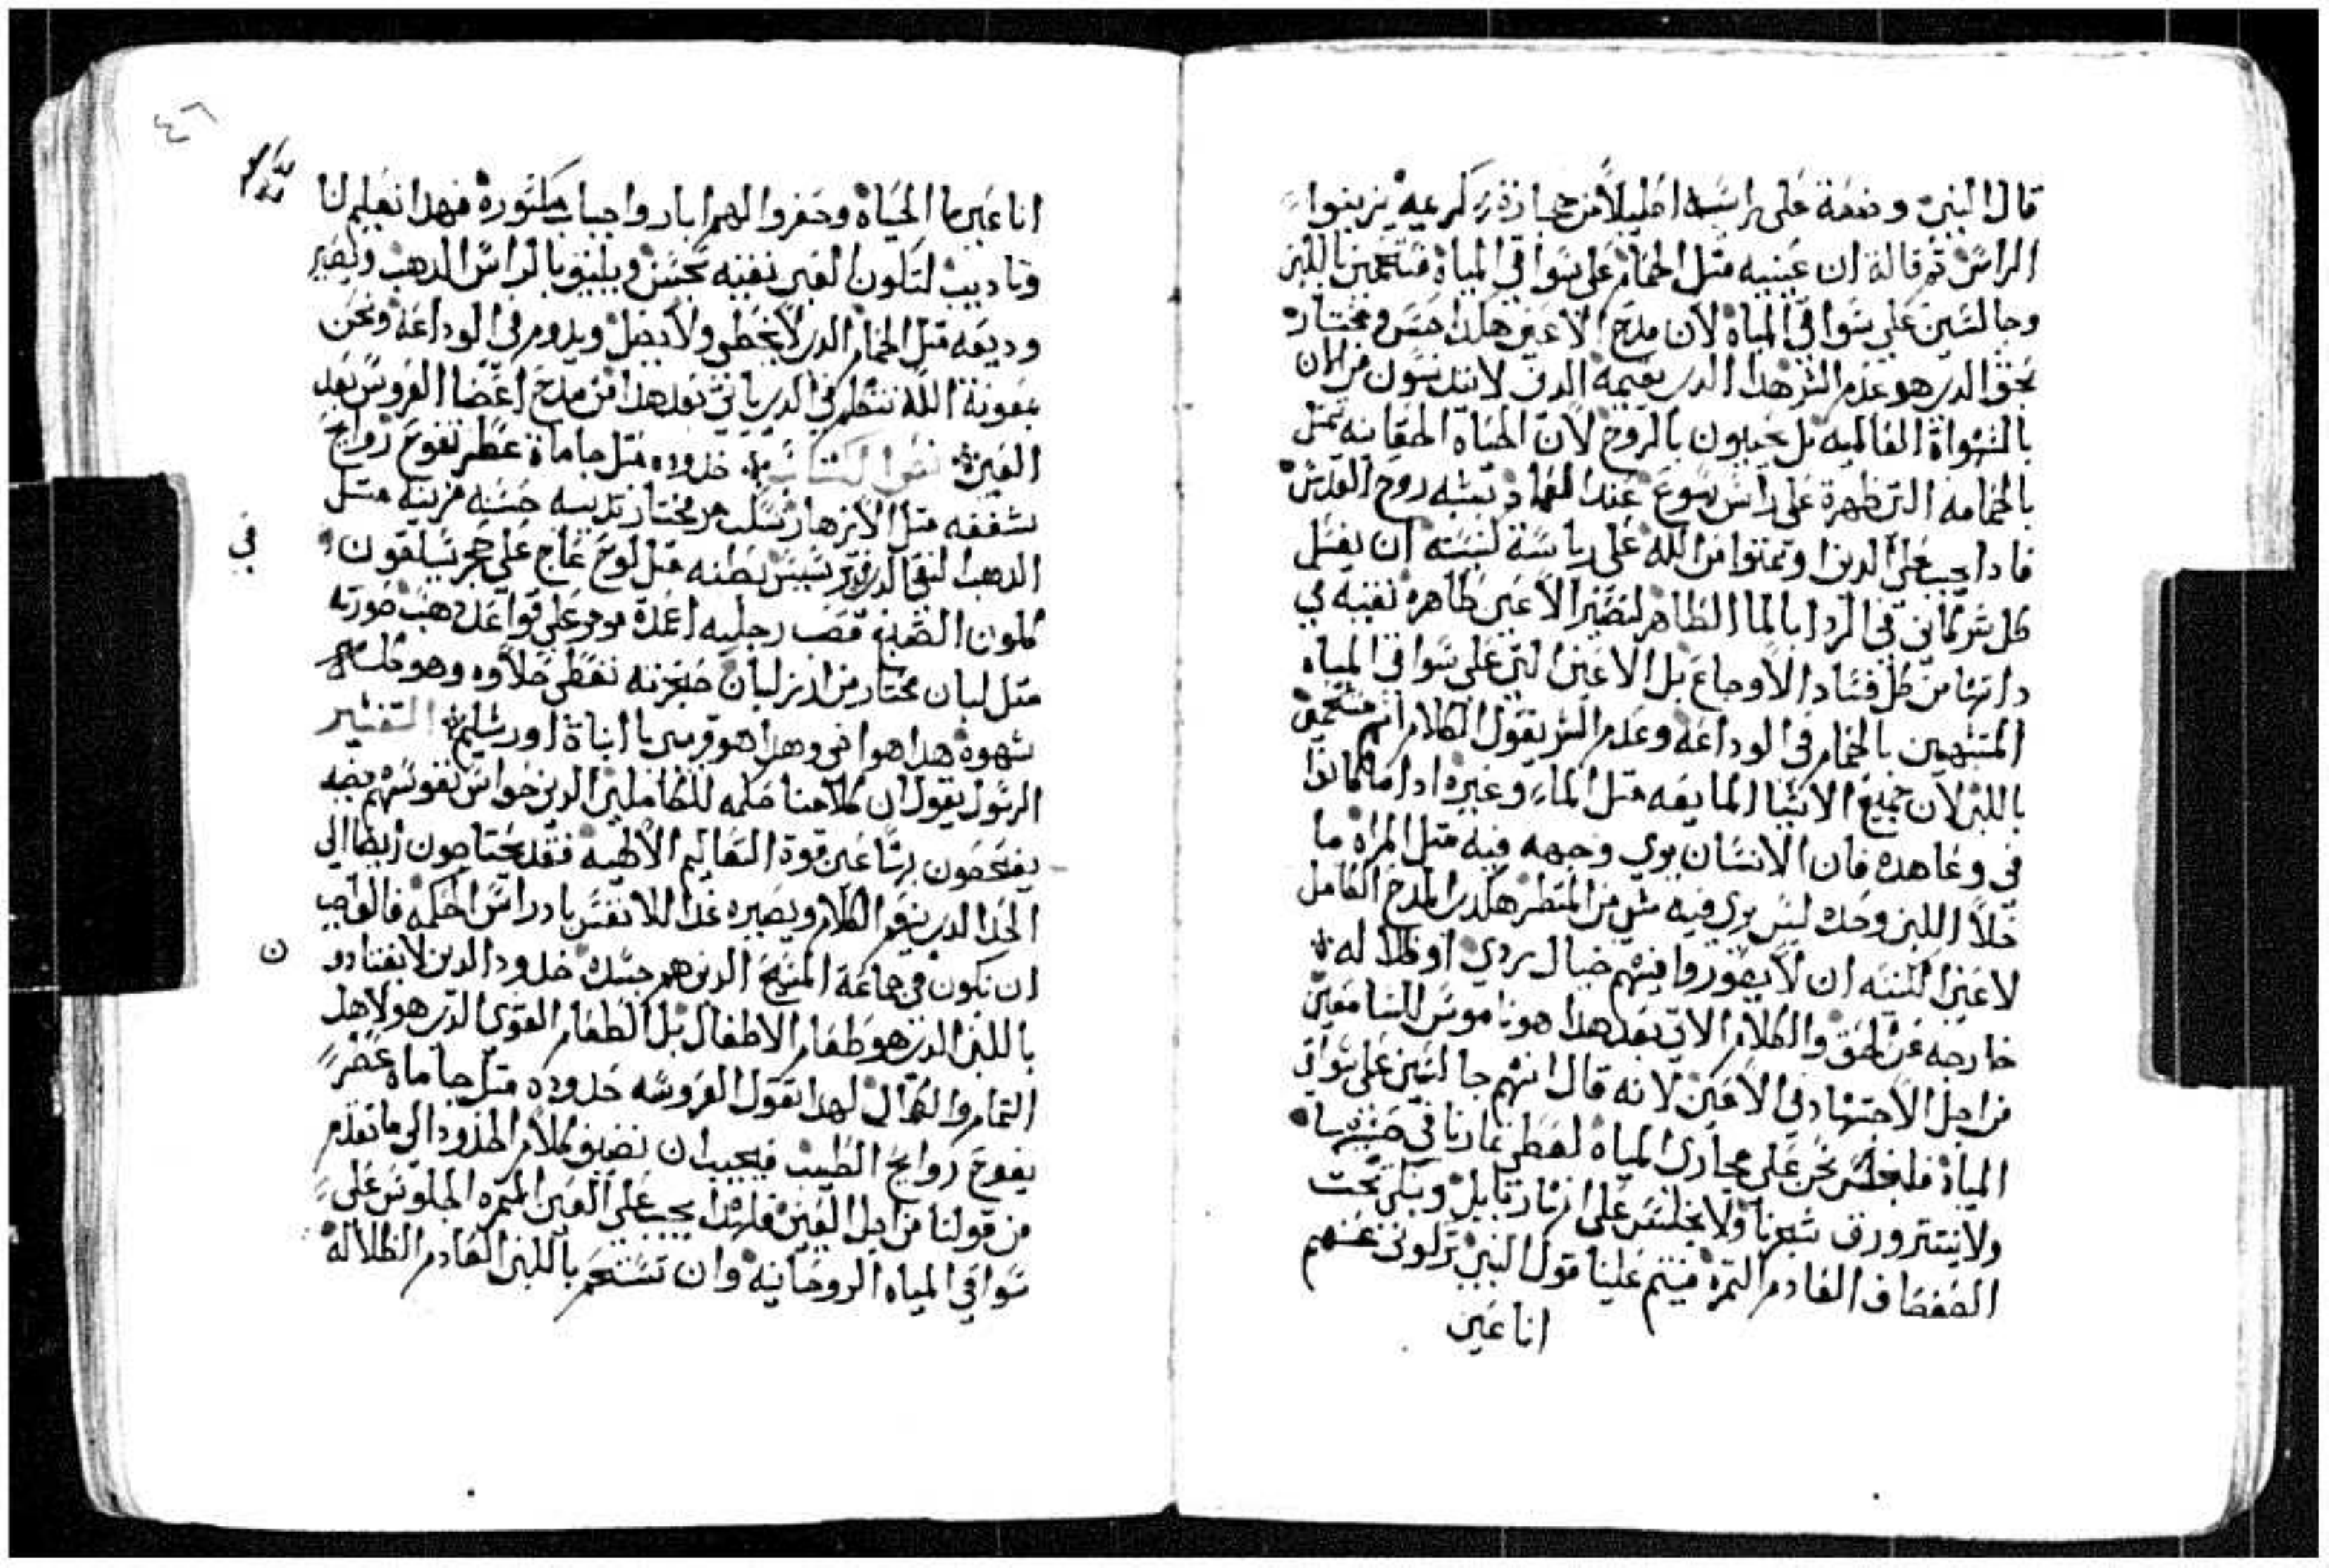 قال النبي وضعة على راسه اكليلاً من حجارة كريمه يزينوا
الراس تم قالة ان عينيه متل الحمام على سواقي المياة مستحمين باللبن
وجالسين على سواقي المياة لان مدح الاعين هكدا حسن ومختار
بحق الدي هو عدم الشر هدا الدي بعيمه الدين لا يتدنسون من الان
بالشهواة العالميه بل يحيون بالروح لان الحياه الحقانيه تمتل
بالحمامه التي ظهرة على راس يسوع عند العماد تشبه روح القدس
فادا يجب على الدين اوتمنوا من الله على رياسة لبيسته ان يغسل
كل شي كاين في الردا بالما الطاهر لتصير الاعين طاهره نقيه في
داتها من كل فساد الاوجاع بل الاعين التي على سواقي المياه
المتشبهين بالحمام في الوداعه وعدم الشر يقول الكلام انهم مستحمين
باللبن لان جميع الاشيا المايعه متل الماء وغيره ادا ما كانوا
في وعا هده فان الانسان يري وجهه فيه متل المراة ما
خلا اللبن وحده ليس يري فيه شي من المنظر هكدي المدح الكامل
لاعين الكنيسه ان لا يصوروا فيهم خيال ردي او ظلاله
خارجه عن الحق والكلام الاتي بعد هدا هو ناموس للسامعين
من اجل الاجتهاد في الاعين لانه قال انهم جالسين على سواقي
المياة فلنجلس نحن على مجاري المياة لنغطي عارنا في حسنها
ولا نستتر ورق شجرنا ولا نجلس على انهار بابل ونبكي تحت
الصفصاف العادم التمرة فيتم علينا قول النبي تركوني عنهم
انا عين
٤٦
انا عين ما الحياة وحفروا لهم ابار واجباب مكسورة فهدا تعليم لنا
وتاديب لتكون العين نقيه تحسن ويليق بالراس الدهب وتصير
وديعه متل الحمام الدي لا يخطي ولا يضل ويدوم في الوداعة ونحن
بمعونة الله نتكلم في الدي ياتي بعد هدا من مدح اعضا العروس بعد
العين نص الكتاب خدوده متل جاماة عطر تفوح روايح
شففه متل الازهار تسكب مر مختار يديه حسنه مزينه متل
الدهب النقي الدي ترسيس بطنه متل لوح عاج على حجر سيلقون
كلون الصبغ قصب رجليه اعمدة مرمر على قواعد دهب صورته
متل لبان مختار من ارز لبان حنجرته تعطي حلاوه وهو كله
شهوة هدا هو اخي وهدا هو قريبي يا ابناة اورشليم التفسير
الرسول يقول ان كلامنا حكمه للكاملين الدين حواس نفوسهم بضبه
يفتحصون برسا عين قوة التعاليم الالهيه فقد يحتاجون ايضا الي
الخد الدي ينعم الكلام ويصيره غدا للانفس بادراس الحكمة فالواجب
ان نكون في جماعة المسيح الدين هم جسده خدود الدين لا يغتادو
في
ن
باللبن الدي هو طعام الاطفال بل الطعام القوي الدي هو لاهل
التمام والكمال لهدا تقول العروسه خدوده متل جاماة عطر
يفوح روايح الطيب فيجب ان نضيف كلام الخدود الي ما تقدم
من قولنا من اجل العين فلهدا يجب على العين المتمره الجلوس على
سواقي المياه الروحانيه وان تستحم باللبن العادم الظلاله